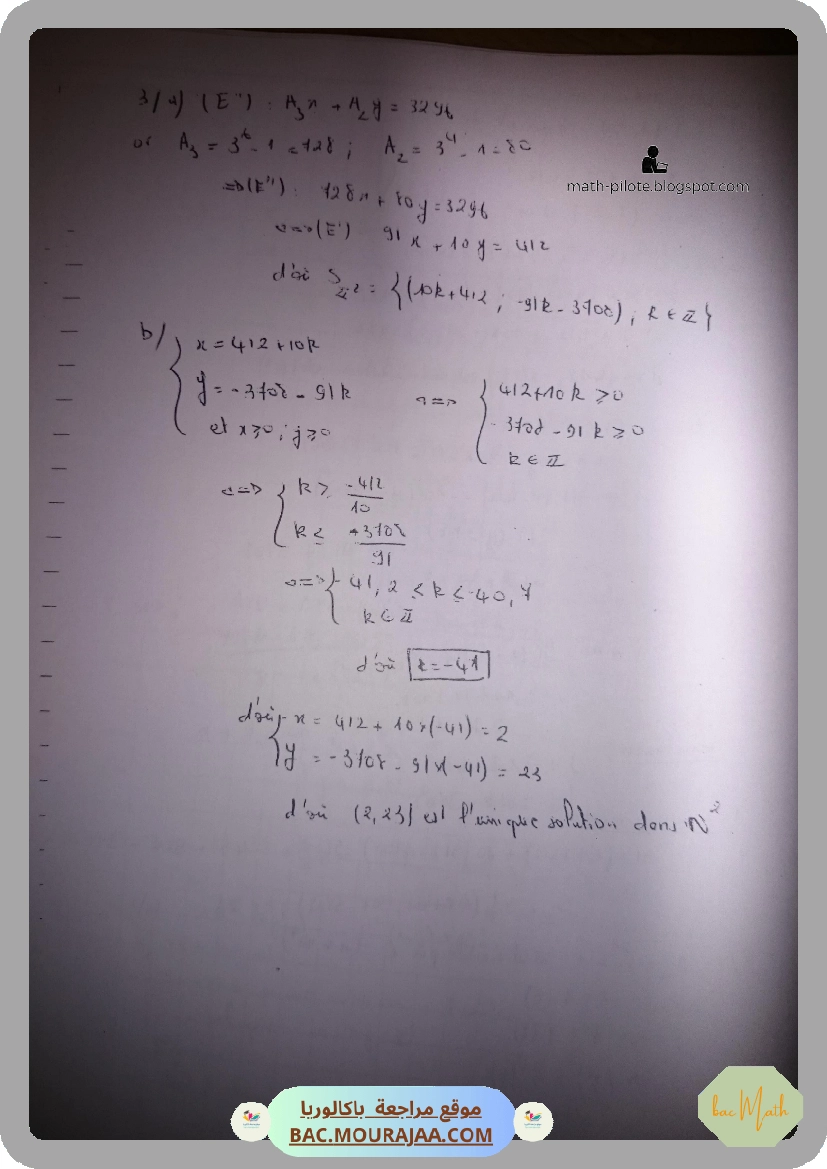 3/a) (E'') : A₃x + A₂y = 3296
or A₃ = 3⁶ - 1 = 728 ; A₂ = 3⁴ - 1 = 80
math-pilote.blogspot.com
=> (E'') : 728x + 80y = 3296
<=> (E') 91x + 10y = 412
d'où S_ℤ² = {(10k+412 ; -91k-3708) ; k ∈ ℤ}
b/ { x = 412 + 10k
y = -3708 - 91k
et x ≥ 0 ; y ≥ 0
<=> { 412+10k ≥ 0
-3708 - 91k ≥ 0
k ∈ ℤ
<=> { k ≥ -412/10
k ≤ -3708/91
<=> { -41,2 ≤ k ≤ -40,7
k ∈ ℤ
d'où k = -41
d'où { x = 412 + 10×(-41) = 2
y = -3708 - 91×(-41) = 23
d'où (2,23) est l'unique solution dans ℕ²
موقع مراجعة باكالوريا
BAC.MOURAJAA.COM
bac Math